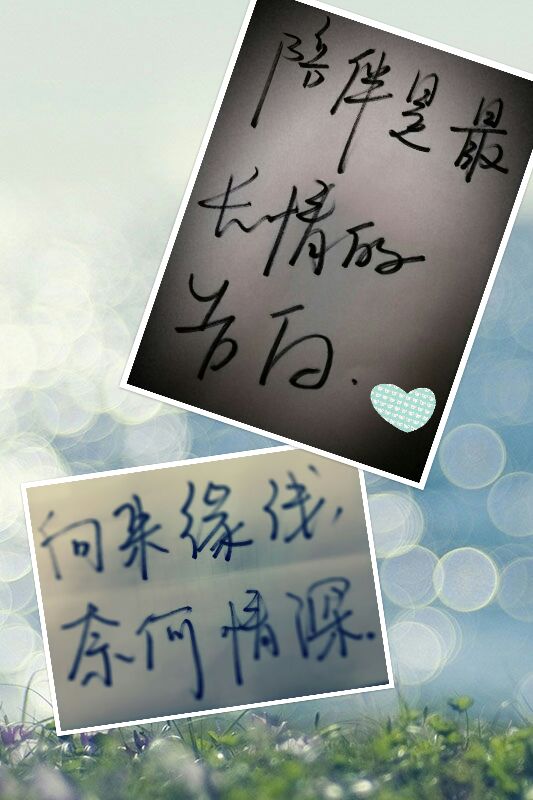 陪伴是最
长情的
告白.
向来缘浅,
奈何情深.